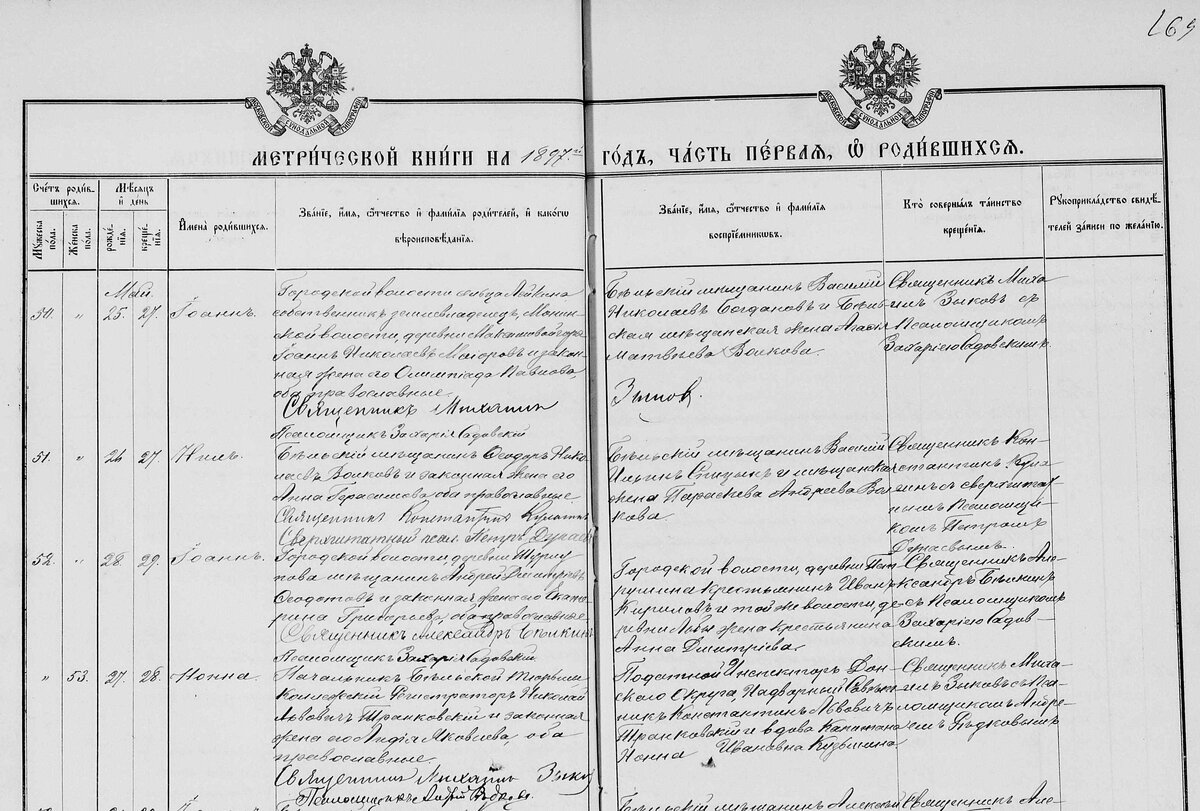 269
МЕТРИ́ЧЕСКОЙ КНИ́ГИ НА 1897.й ГО́ДЪ, ЧА́СТЬ ПЕ́РВАЯ, Ѡ РОДИ́ВШИХСЯ.
Сче́тъ роди́вшихся.
Мѣ́сяцъ и́ день
И́мена роди́вшихся.
Зва́нїе, и́мя, ѻ́тчество и́ фами́лїя роди́телей, и́ како́гѡ вѣроисповѣ́данїя.
Зва́нїе, и́мя, ѻ́тчество и́ фами́лїя воспрїе́мниковъ.
Кто̀ соверша́лъ та́инство креще́нїя.
Рꙋкоприкла́дство свидѣ́телей за́писи по жела́нїю.
Мꙋ́жеска по́ла.
Же́нска по́ла.
рожде́нїя.
креще́нїя.
Май.
50. " 25. 27. Іоаннъ.
Городской волости
собственникъ землевладѣлецъ,
ской волости, деревни
Іоаннъ Николаевъ Маіоровъ и закон-
ная жена его Олимпіада Павлова,
оба православные.
Священникъ Михаилъ
Псаломщикъ Захарія Садовскій
Бѣльскій мѣщанинъ Василій
Николаевъ Богдановъ и Бѣль-
ская мѣщанская жена Агафія
Матвѣева Волкова.
Зыков.
Священникъ Миха-
илъ Зыковъ съ
Псаломщикомъ
Захаріею Садовскимъ.
51. " 26 27. Нилъ.
Бѣльскій мѣщанинъ Ѳеодоръ Нико-
лаевъ Волковъ и законная жена его
Анна Герасимова, оба православные
Священникъ Константинъ
Сверхштатный псал. Петръ
Бѣльскій мѣщанинъ Василій
Ильинъ и мѣщанская
жена Параскева Андреева Вол-
кова.
Священникъ Кон-
стантинъ
съ сверхштат-
нымъ Псаломщи-
комъ Петромъ
52. " 28. 29. Іоаннъ.
Городской волости, деревни
мѣщанинъ Андрей Димитріевъ
Ѳедотовъ и законная жена его Екате-
рина Григорьева, оба православные
Священникъ Александръ Бѣлкинъ
Псаломщикъ Захарія Садовскій
Городской волости, деревни
крестьянинъ Иванъ
Кириловъ и той же волости, де-
ревни жена крестьянина
Анна Дмитріева.
Священникъ Але-
ксандръ Бѣлкинъ
съ Псаломщикомъ
Захаріею Садов-
скимъ.
" 53. 27. 28. Нонна.
Начальникъ Бѣльской Тюрьмы
Коллежскій Регистраторъ Николай
Львовичъ Транковскій и законная
жена его Лидія Яковлева, оба
православные.
Священникъ Михаилъ Зыков
Псаломщикъ
Податной Инспекторъ Дон-
скаго Округа Надворный Совѣт-
никъ Константинъ Львовичъ
Транковскій и вдова Капитана
Нонна Ивановна Кузьмина.
Священникъ Миха-
илъ Зыковъ съ Пса-
ломщикомъ Андре-
емъ
Бѣльскій мѣщанинъ Алексѣй
Священникъ Але-